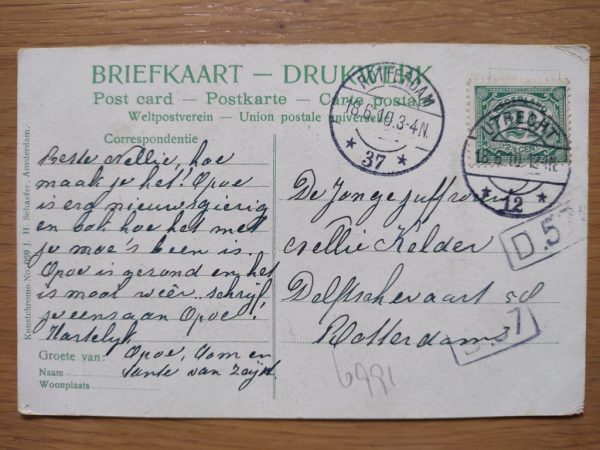 BRIEFKAART — DRUKWERK
Post card — Postkarte — Carte postale
Weltpostverein — Union postale universelle
Correspondentie
Beste Nellie, hoe
maak je het! Opoe
is erg nieuwsgierig
en ook hoe het met
je moe's been is.
Opoe is gezond en het
is mooi weêr. schrijf
je eens aan Opoe!
Hartelijk
Groete van: Opoe, Oom en
Naam Tante van Zeijst
Woonplaats
Kunstchromo No. 050 J. H. Schaefer, Amsterdam.
ROTTERDAM
18.6.10.3-4N.
* 37 *
NEDERLAND
UTRECHT
18.6.10.
* 12 *
De Jongejuffrouw
Nellie Kelder
Delftschevaart
Rotterdam
D.57
D.57